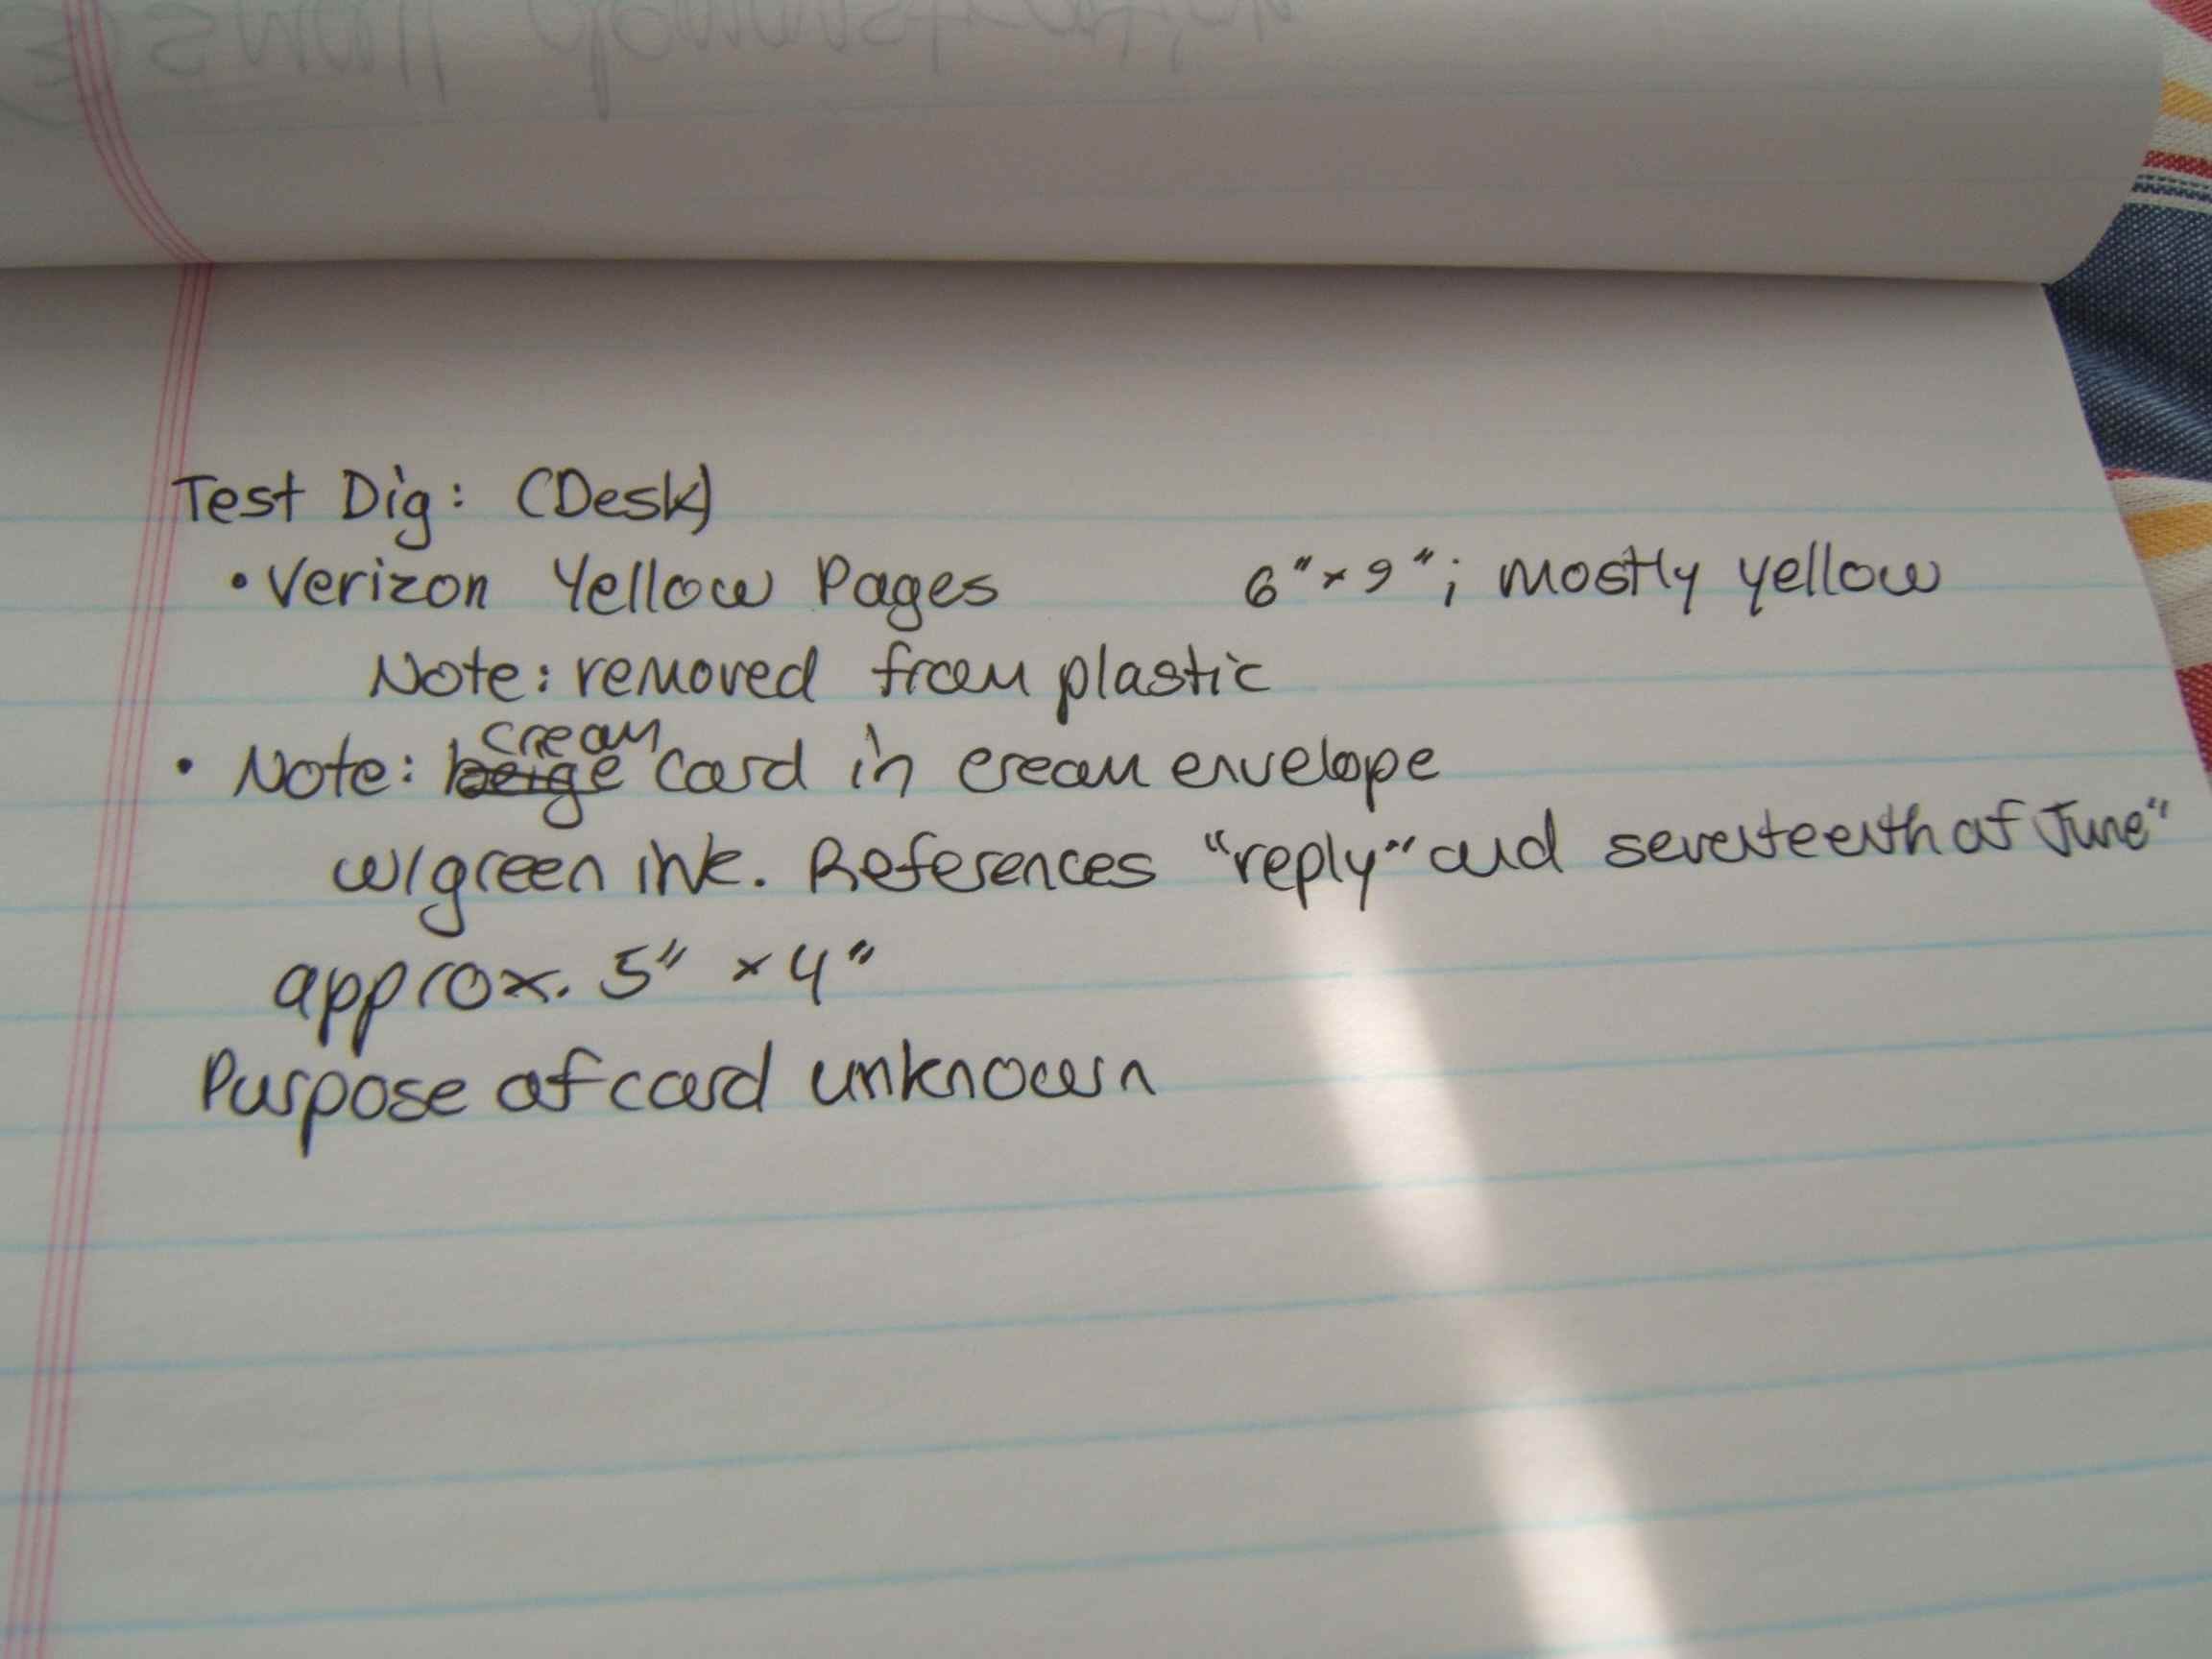 Test Dig: (Desk)
• Verizon Yellow Pages 6" x 9"; mostly yellow
Note: removed from plastic
cream
• Note: beige card in cream envelope
w/green ink. References "reply" and seventeenth of June"
approx. 5" x 4"
Purpose of card unknown